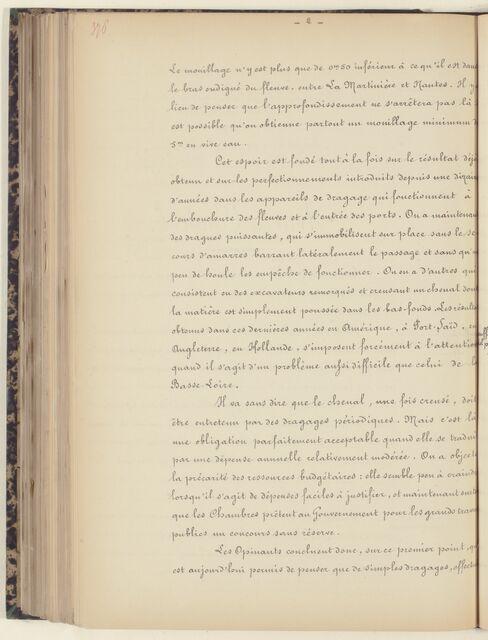 376
— 2 —
Le mouillage n'y est plus que de 0m50 inférieur à ce qu'il est dans
le bras endigué du fleuve, entre La Martinière et Nantes. Il y
lieu de penser que l'approfondissement ne s'arrêtera pas là
est possible qu'on obtienne partout un mouillage minimum d
5m en vive eau.
Cet espoir est fondé tout à la fois sur le résultat déjà
obtenu et sur les perfectionnements introduits depuis une dizain
d'années dans les appareils de dragage qui fonctionnent à
l'embouchure des fleuves et à l'entrée des ports. On a maintenan
des dragues puissantes, qui s'immobilisent sur place sans le se
cours d'amarres barrant latéralement le passage et sans qu'u
peu de houle les empêche de fonctionner. On en a d'autres qui
consistent en des excavateurs remorqués et creusant un chenal dont
la matière est simplement poussée dans les bas-fonds. Les résultat
obtenus dans ces dernières années en Amérique, à Port-Saïd, en
Angleterre, en Hollande, s'imposent forcément à l'attention
quand il s'agit d'un problème aussi difficile que celui de la
Basse-Loire.
Il va sans dire que le chenal, une fois creusé, doit
être entretenu par des dragages périodiques. Mais c'est là
une obligation parfaitement acceptable quand elle se tradui
par une dépense annuelle relativement modérée. On a objecté
la précarité des ressources budgétaires : elle semble peu à craind
lorsqu'il s'agit de dépenses faciles à justifier, et maintenant
que les Chambres prêtent au Gouvernement pour les grands trava
publics un concours sans réserve.
Les Opinants concluent donc, sur ce premier point, qu
est aujourd'hui permis de penser que de simples dragages, effect